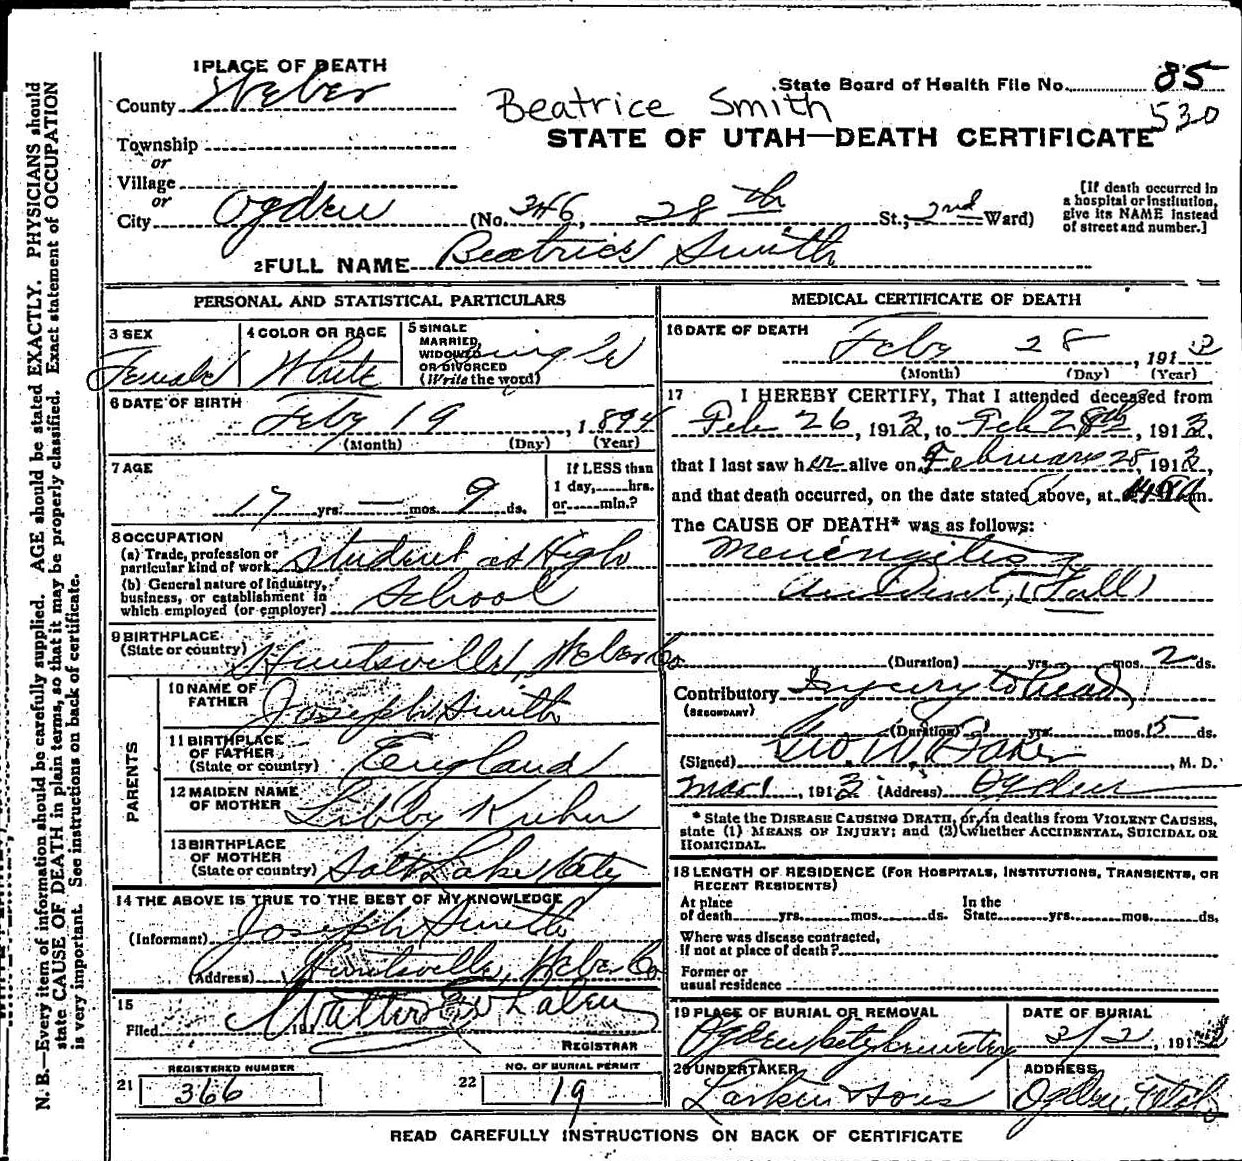 1 PLACE OF DEATH
County Weber
State Board of Health File No. 85
530
Beatrice Smith
STATE OF UTAH—DEATH CERTIFICATE
Township
or
Village
or
City Ogden (No. 346, 28th St.; 2nd Ward)
[If death occurred in
a hospital or institution,
give its NAME instead
of street and number.]
2 FULL NAME Beatrice Smith
PERSONAL AND STATISTICAL PARTICULARS
3 SEX
Female
4 COLOR OR RACE
White
5 SINGLE
MARRIED,
WIDOWED
OR DIVORCED
(Write the word)
Single
6 DATE OF BIRTH
Feby 19, 1894
(Month) (Day) (Year)
7 AGE
17 yrs. — mos. 9 ds.
If LESS than
1 day,......hrs.
or......min.?
8 OCCUPATION
(a) Trade, profession or
particular kind of work Student at High
(b) General nature of Industry,
business, or establishment in
which employed (or employer) School
9 BIRTHPLACE
(State or country) Huntsville, Weber Co
PARENTS
10 NAME OF
FATHER Joseph Smith
11 BIRTHPLACE
OF FATHER
(State or country) England
12 MAIDEN NAME
OF MOTHER Libby
13 BIRTHPLACE
OF MOTHER
(State or country) Salt Lake City
14 THE ABOVE IS TRUE TO THE BEST OF MY KNOWLEDGE
(Informant) Joseph Smith
(Address) Huntsville, Weber Co
15
Filed 191 Walter
REGISTRAR
21 REGISTERED NUMBER
366
22 NO. OF BURIAL PERMIT
19
MEDICAL CERTIFICATE OF DEATH
16 DATE OF DEATH
Feby 28, 191
(Month) (Day) (Year)
17 I HEREBY CERTIFY, That I attended deceased from
Feb 26, 191 , to Feb 28th, 191 ,
that I last saw her alive on February 28, 191 ,
and that death occurred, on the date stated above, at m.
The CAUSE OF DEATH* was as follows:
Meningitis
Accident, (Fall)
(Duration) yrs. mos. 2 ds.
Contributory Injury to head
(SECONDARY)
(Duration) yrs. mos. 5 ds.
(Signed) Geo. W. Baker, M. D.
Mar 1, 191 (Address) Ogden
* State the DISEASE CAUSING DEATH, or, in deaths from VIOLENT CAUSES,
state (1) MEANS OF INJURY; and (2) whether ACCIDENTAL, SUICIDAL OR
HOMICIDAL.
18 LENGTH OF RESIDENCE (FOR HOSPITALS, INSTITUTIONS, TRANSIENTS, OR
RECENT RESIDENTS)
At place
of death yrs. mos. ds.
In the
State yrs. mos. ds.
Where was disease contracted,
if not at place of death?
Former or
usual residence
19 PLACE OF BURIAL OR REMOVAL
Ogden City Cemetery
DATE OF BURIAL
3/2, 191
20 UNDERTAKER
Larkin & Sons
ADDRESS
Ogden, Utah
READ CAREFULLY INSTRUCTIONS ON BACK OF CERTIFICATE
N. B.—Every item of information should be carefully supplied. AGE should be stated EXACTLY. PHYSICIANS should
state CAUSE OF DEATH in plain terms, so that it may be properly classified. Exact statement of OCCUPATION
is very important. See instructions on back of certificate.